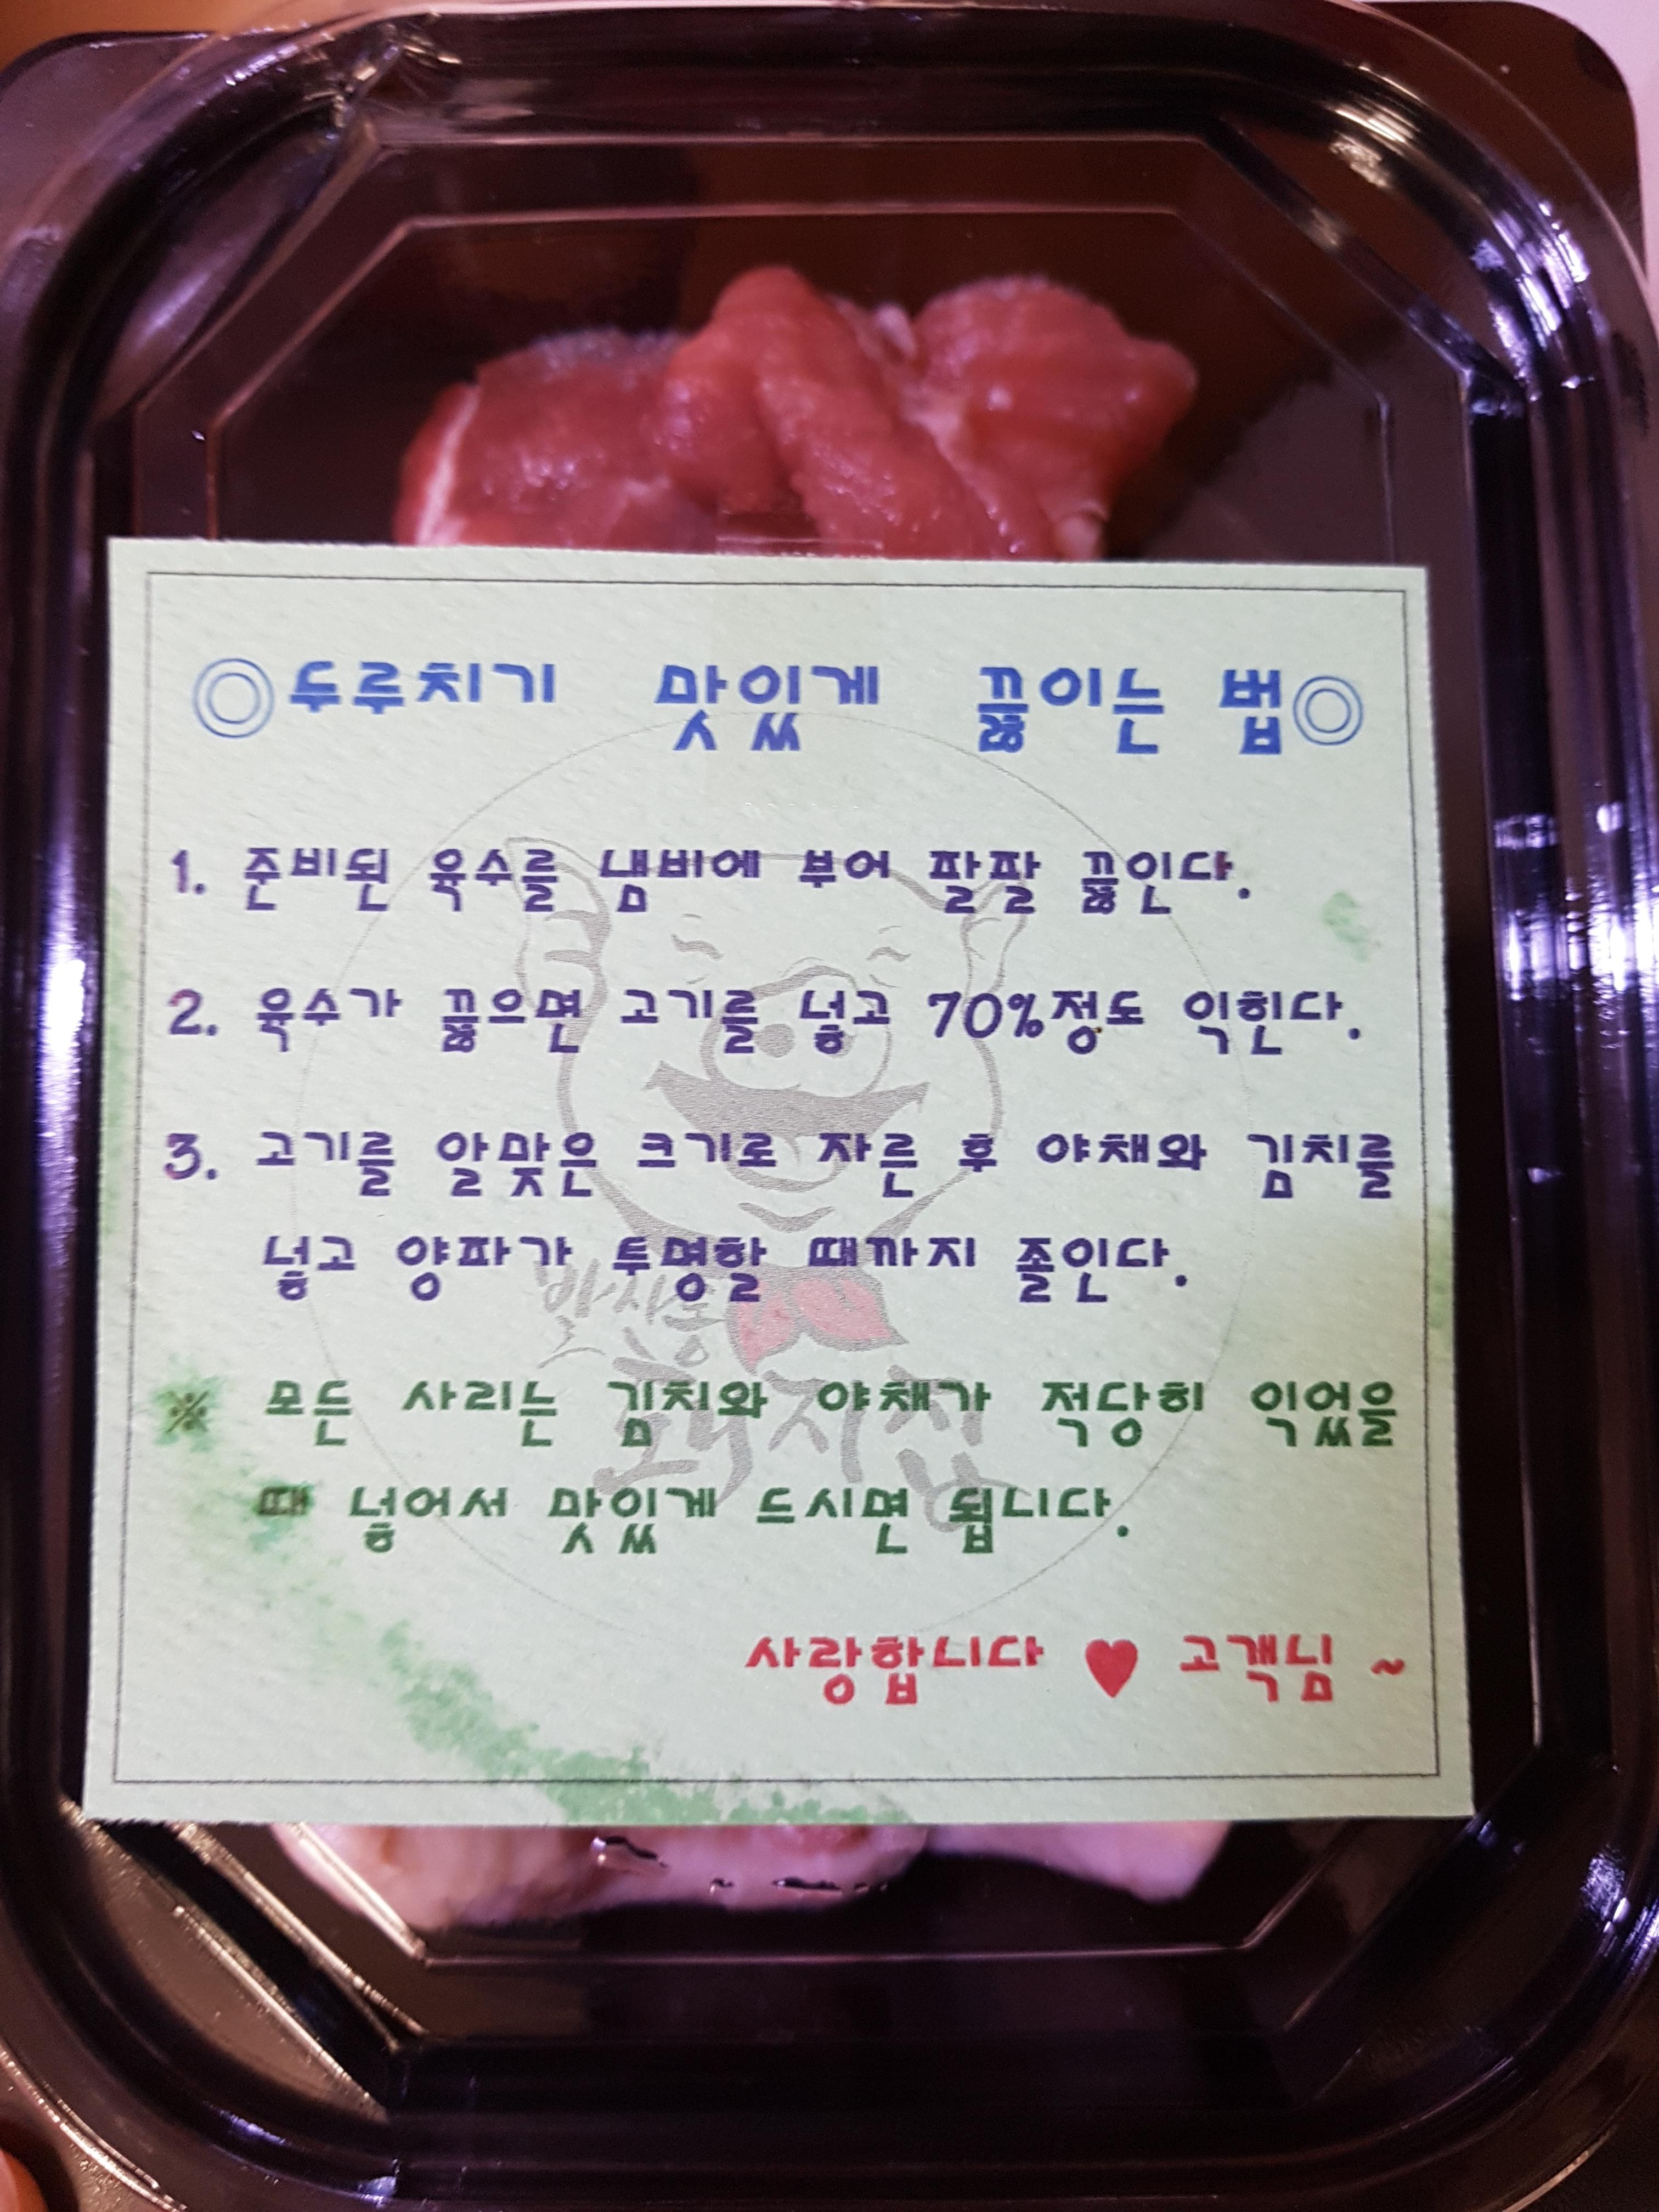 ◎두루치기 맛있게 끓이는 법◎
1. 준비된 육수를 냄비에 부어 팔팔 끓인다.
2. 육수가 끓으면 고기를 넣고 70%정도 익힌다.
3. 고기를 알맞은 크기로 자른 후 야채와 김치를
넣고 양파가 투명할 때까지 졸인다.
※ 모든 사리는 김치와 야채가 적당히 익었을
때 넣어서 맛있게 드시면 됩니다.
사랑합니다 ♥ 고객님 ~